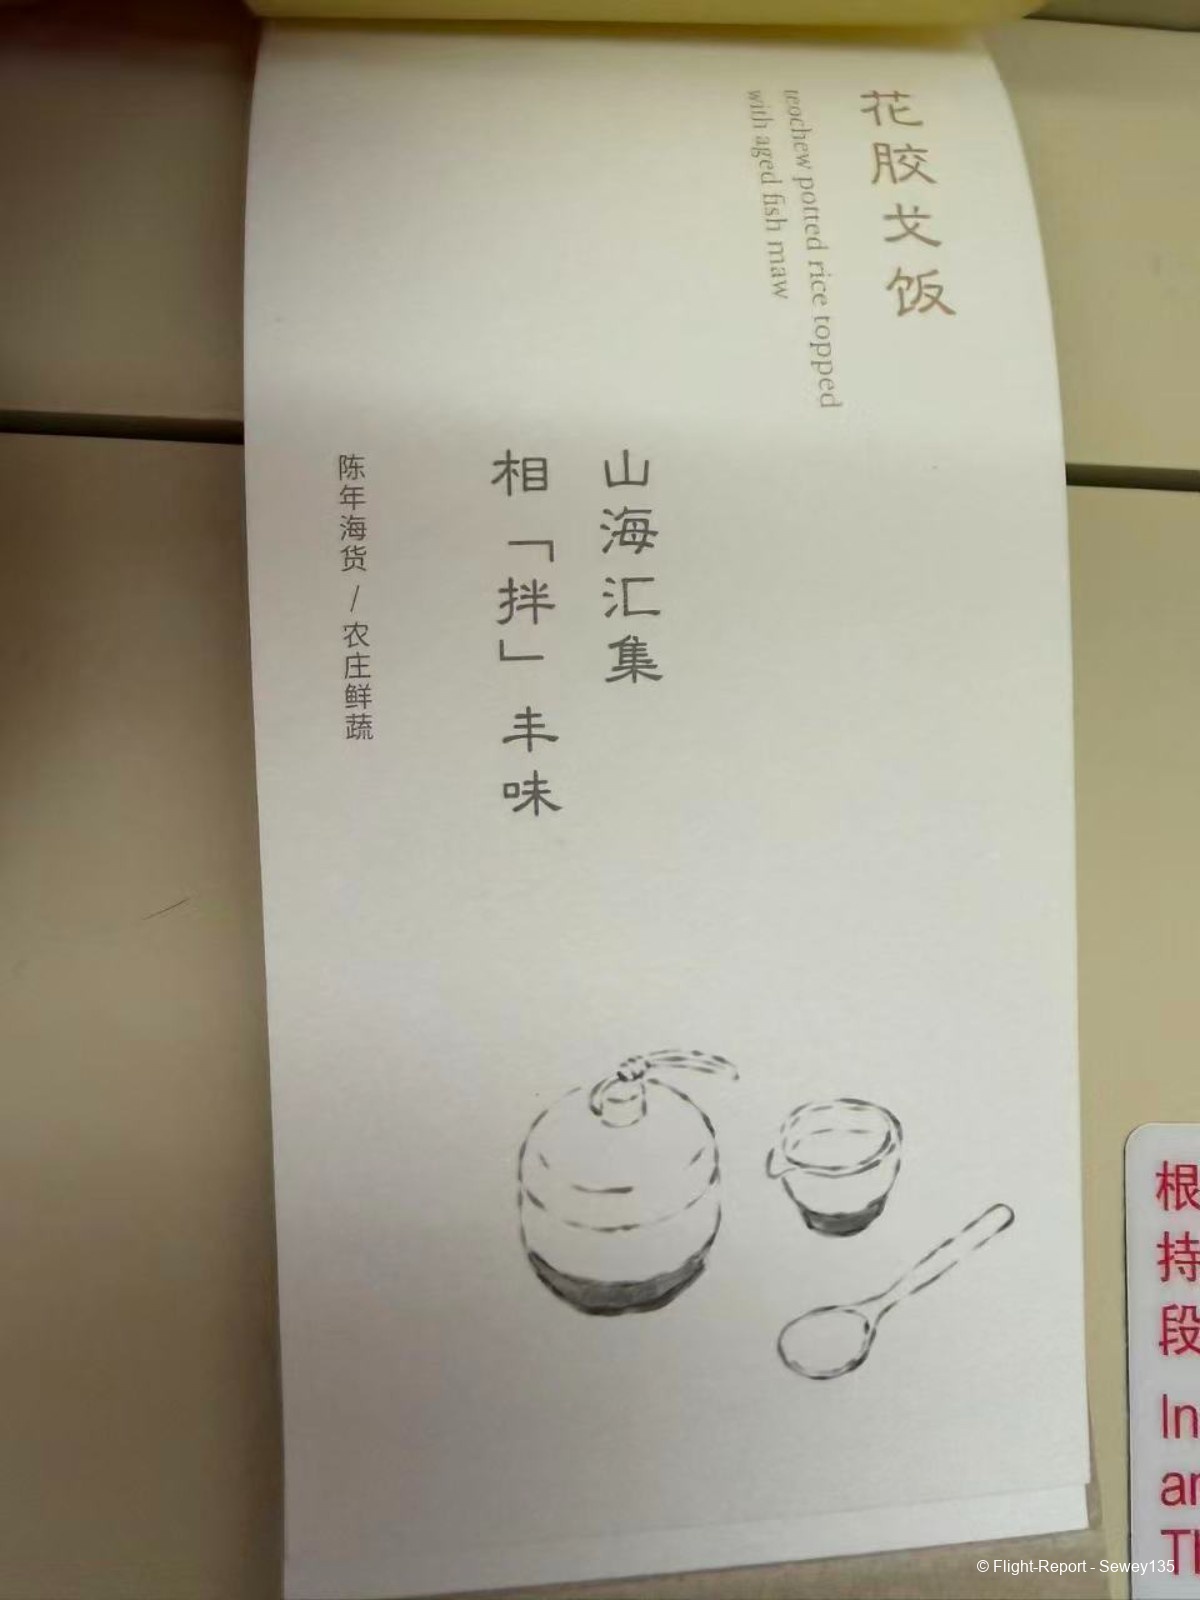 花胶戈饭
teochew potted rice topped
with aged fish maw
山海汇集
相「拌」丰味
陈年海货 / 农庄鲜蔬
根
持
段
In
an
Th
© Flight-Report - Sewey135